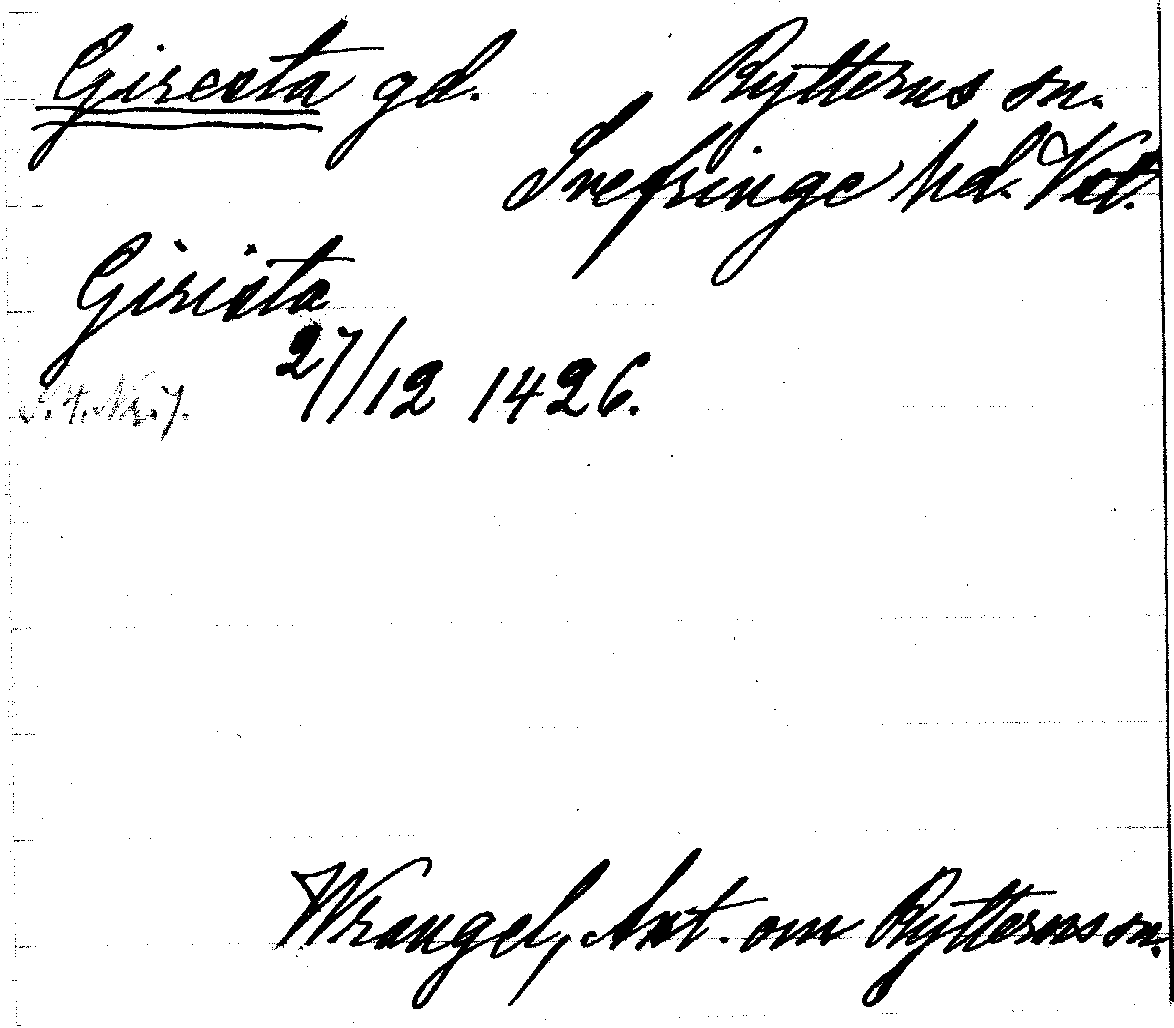 Giresta gd. Rytterns sn.
Snefringe hd. Vstl.
Girista
27/12 1426.
S. 4. Nr. 7.
Wrangel, Ant. om Rytterns sn.